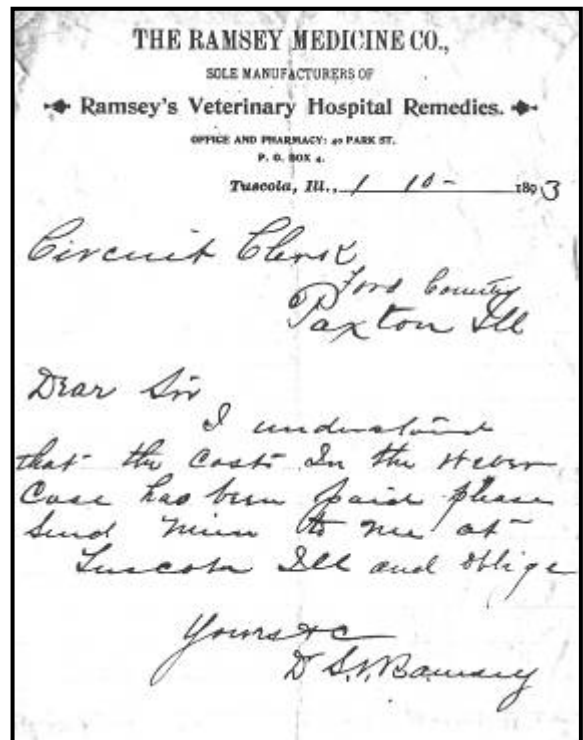 THE RAMSEY MEDICINE CO.,
SOLE MANUFACTURERS OF
Ramsey's Veterinary Hospital Remedies.
OFFICE AND PHARMACY: 40 PARK ST.
P. O. BOX 4.
Tuscola, Ill., 1 10- 1893
Circuit Clerk
Ford County
Paxton Ill
Dear Sir
I understand
that the costs In the Weber
Case has been paid please
send mine to me at
Tuscola Ill and oblige
Yours &c
D S. Ramsey